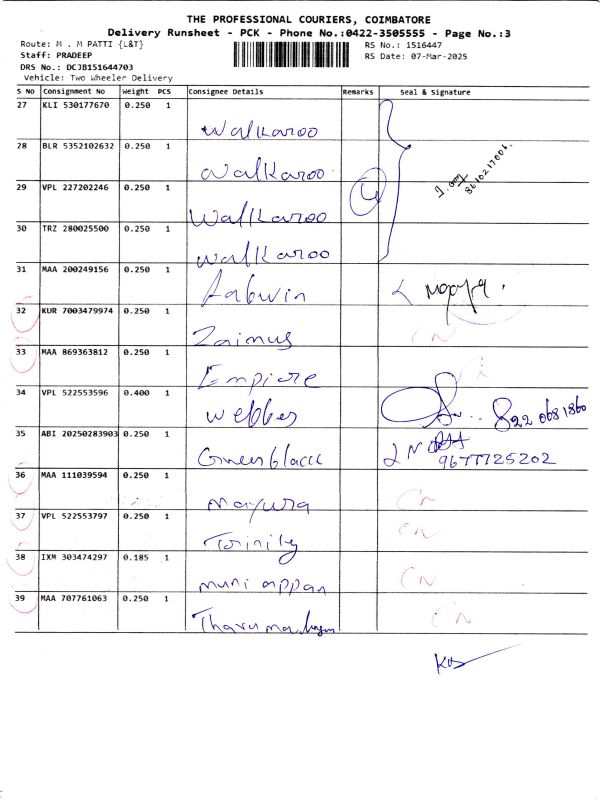 THE PROFESSIONAL COURIERS, COIMBATORE
Delivery Runsheet - PCK - Phone No.:0422-3505555 - Page No.:3
Route: M . M PATTI {L&T}
RS No.: 1516447
Staff: PRADEEP
RS Date: 07-Mar-2025
DRS No.: DCJB151644703
Vehicle: Two Wheeler Delivery
S No Consignment No Weight PCS Consignee Details Remarks Seal & Signature
27 KLI 530177670 0.250 1 Walkaroo
28 BLR 5352102632 0.250 1 Walkaroo
29 VPL 227202246 0.250 1 Walkaroo 4 8610217006
30 TRZ 280025500 0.250 1 Walkaroo
31 MAA 200249156 0.250 1
32 KUR 7003479974 0.250 1 Zaimus CN
33 MAA 869363812 0.250 1 Empire
34 VPL 522553596 0.400 1 Webbes
35 ABI 20250283903 0.250 1 9677725202
36 MAA 111039594 0.250 1 Mayura CN
37 VPL 522553797 0.250 1 CN
38 IXM 303474297 0.185 1 muni appan CN
39 MAA 707761063 0.250 1 CN